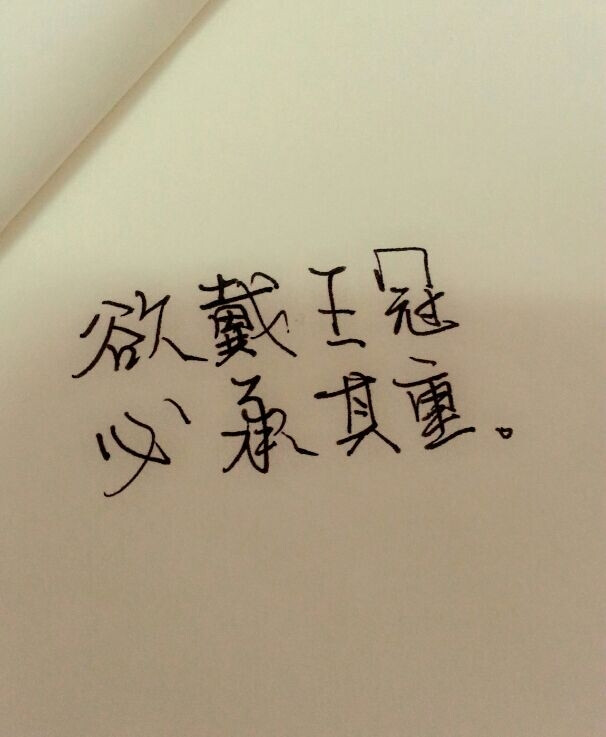 欲戴王冠
必承其重。